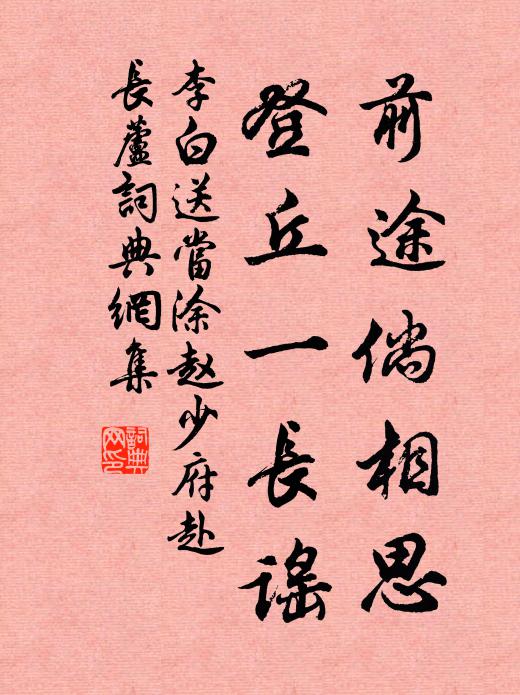 前途倘相思
登丘一長謠
李白送當涂赵少府赴
長蘆詞典網集
詞典
网印